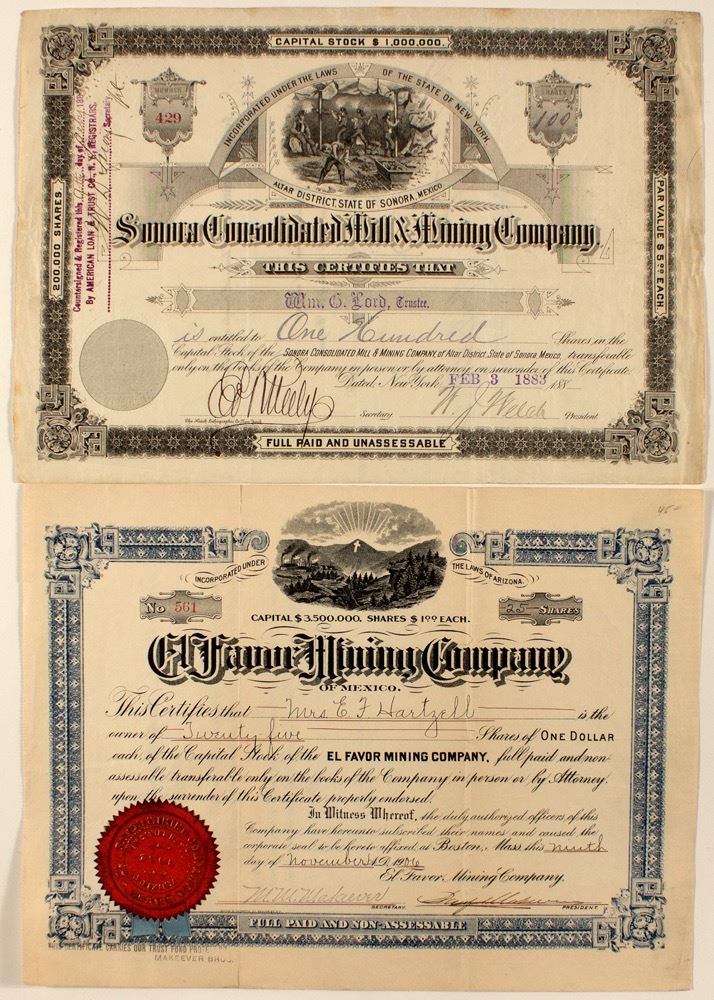 CAPITAL STOCK $ 1,000,000.
NUMBER
429
SHARES
100
INCORPORATED UNDER THE LAWS OF THE STATE OF NEW YORK
ALTAR DISTRICT, STATE OF SONORA, MEXICO
200,000 SHARES
PAR VALUE $ 5.00 EACH
Countersigned & Registered this day of 188
By AMERICAN LOAN & TRUST CO., N. Y., REGISTRARS.
Secretary
Sonora Consolidated Mill & Mining Company.
THIS CERTIFIES THAT
Wm. G. Lord, Trustee.
is entitled to One Hundred Shares in the
Capital Stock of the SONORA CONSOLIDATED MILL & MINING COMPANY, of Altar District, State of Sonora, Mexico, transferable
only on the books of the Company in person or by attorney on surrender of this Certificate
Dated, New York, FEB 3 1883 188
Secretary W. J. Welch President
FULL PAID AND UNASSESSABLE
45
INCORPORATED UNDER THE LAWS OF ARIZONA.
No 561
25 SHARES
CAPITAL $3,500,000, SHARES $1.00 EACH.
El Favor Mining Company
OF MEXICO.
This Certifies that Mrs. E. F. Hartzell is the
owner of Twenty five Shares of ONE DOLLAR
each, of the Capital Stock of the EL FAVOR MINING COMPANY, full paid and non-
assessable transferable only on the books of the Company in person or by Attorney,
upon the surrender of this Certificate properly endorsed.
In Witness Whereof, the duly authorized officers of this
Company have hereunto subscribed their names and caused the
corporate seal to be hereto affixed, at Boston, Mass. this ninth
day of November A.D. 1906
El Favor Mining Company.
SECRETARY. PRESIDENT.
FULL PAID AND NON-ASSESSABLE
THIS CERTIFICATE CARRIES OUR TRUST FUND
MAKEEVER BROS.